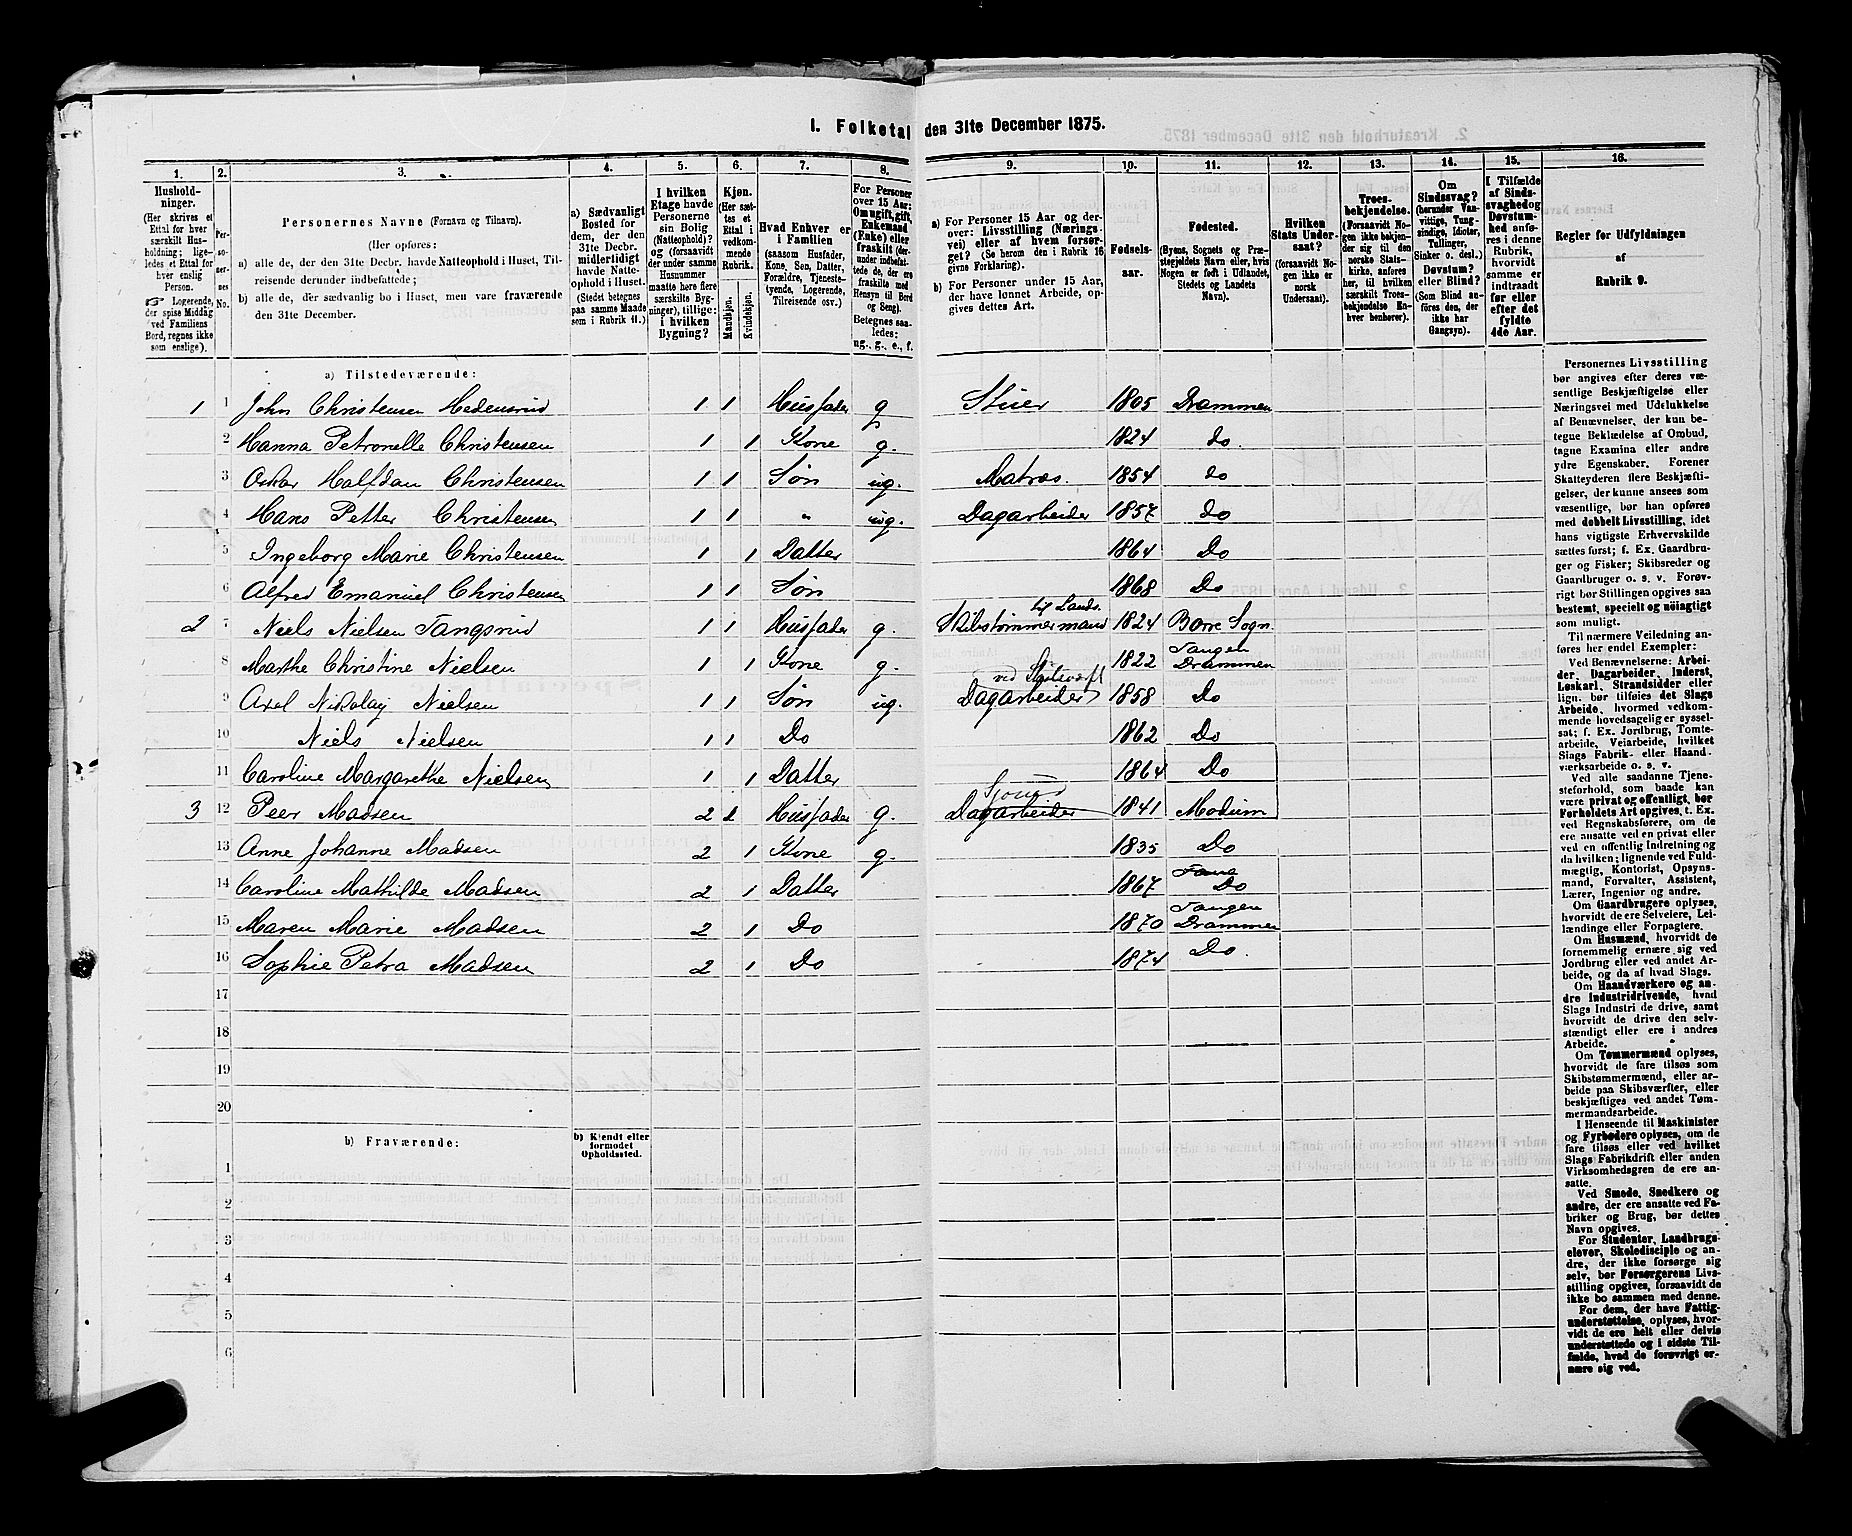 1. Folketal den 31te December 1875.
1. 2. 3. 4. 5. 6. 7. 8. 9. 10. 11. 12. 13. 14. 15. 16.
Hushold-
ninger.
(Her skrives et
Ettal for hver
særskilt Hus-
holdning; lige-
ledes et Ettal for
hver enslig
Person.
☞ Logerende,
der spise Middag
ved Familiens
Bord, regnes ikke
som enslige).
Per-
so-
ner-
nes
No.
Personernes Navne (Fornavn og Tilnavn).
(Her opføres:
a) alle de, der den 31te Decbr. havde Natteophold i Huset, Til-
reisende derunder indbefattede;
b) alle de, der sædvanlig bo i Huset, men vare fraværende
den 31te December.
a) Sædvanligt
Bosted for
dem, der den
31te Decbr.
midlertidigt
havde Natte-
ophold i Huset.
(Stedet betegnes
paa samme Maade
som i Rubrik 11.)
I hvilken
Etage havde
Personerne
sin Bolig
(Natteophold)?
og (forsaavidt
der under samme
Husnummer
maatte høre flere
særskilte Byg-
ninger), tillige:
i hvilken
Bygning?
Kjøn.
(Her sæt-
tes et
Ettal i
vedkom-
mende
Rubrik.
Mandskjøn.
Kvindeskjøn.
Hvad Enhver er
i Familien
(saasom Husfader,
Kone, Søn, Datter,
Forældre, Tjeneste-
tyende, Logerende,
Tilreisende osv.)
For Personer
over 15 Aar:
Om ugift, gift,
Enkemand
(Enke) eller
fraskilt (der-
under indbefat-
tede de, der ere
fraskilte med
Hensyn til Bord
og Seng).
Betegnes saa-
ledes:
ug., g., e., f.
a) For Personer 15 Aar og der-
over: Livsstilling (Nærings-
vei) eller af hvem forsør-
get? (Se herom den i Rubrik 16
givne Forklaring).
b) For Personer under 15 Aar,
der have lønnet Arbeide, op-
gives dettes Art.
Fødsels-
aar.
Fødested.
(Byens, Sognets og Præ-
stegjeldets Navn eller, hvis
Nogen er født i Udlandet,
Stedets og Landets
Navn).
Hvilken
Stats Under-
saat?
(forsaavidt No-
gen ikke er
norsk
Undersaat).
Troes-
bekjendelse.
(Forsaavidt No-
gen ikke bekjen-
der sig til den
norske Stats-
kirke, anføres
her, til hvilken
særskilt Troes-
bekjendelse En-
hver henhører).
Om
Sindssvag?
(herunder Van-
vittige, Tung-
sindige, Idioter,
Tullinger,
Sinker o. desl.)
Døvstum?
eller Blind?
(Som Blind an-
føres den, der
ikke har
Gangsyn).
I Tilfælde
af Sinds-
svaghed og
Døvstum-
hed anfø-
res i denne
Rubrik,
hvorvidt
samme er
indtraadt
før eller
efter det
fyldte
4de Aar.
Regler for Udfyldningen
af
Rubrik 9.
a) Tilstedeværende:
1 1 John Christensen Hedensrud 1 1 Husfader g Stuer 1805 Drammen
2 Hanna Petronelle Christensen 1 1 Kone g. 1824 do.
3 Oskar Halfdan Christensen 1 1 Søn ug. Matros. 1854 do
4 Hans Petter Christensen 1 1 " ug. Dagarbeider 1857 do
5 Ingeborg Marie Christensen 1 1 Datter 1864 Do
6 Alfred Emanuel Christensen 1 1 Søn 1868 Do
til Lands.
2 7 Niels Nielsen Tangsrud 1 1 Husfader g. Skibstømmermand 1824 Borre Sogn
8 Marthe Christine Nielsen 1 1 Kone g. 1822 Tangen Drammen
ved
9 Axel Nikolay Nielsen 1 1 Søn ug. Dagarbeider 1858 Do
10 Niels Nielsen 1 1 Do 1862 Do
11 Caroline Margarethe Nielsen 1 1 Datter 1864 Do
3 12 Peer Madsen 2 1 Husfader g. Dagarbeider 1841 Modum
13 Anne Johanne Madsen 2 1 Kone g. 1835 Do
14 Caroline Mathilde Madsen 2 1 Datter 1867 Do
15 Maren Marie Madsen 2 1 Do 1870 Tangen Drammen
16 Sophie Petra Madsen 2 1 Do 1874 Do.
17
18
19
20
b) Fraværende:
b) Kjendt eller
formodet
Opholdssted.
1
2
3
4
5
6
Personernes Livsstilling
bør angives efter deres væ-
sentlige Beskjæftigelse eller
Næringsvei med Udelukkelse
af Benævnelser, der kun be-
tegne Beklædelse af Ombud,
tagne Examina eller andre
ydre Egenskaber. Forener
Skatteyderen flere Beskjæfti-
gelser, der kunne ansees som
væsentlige, bør han opføres
med dobbelt Livsstilling, idet
hans vigtigste Erhvervskilde
sættes først; f. Ex. Gaardbru-
ger og Fisker; Skibsreder og
Gaardbruger o. s. v. Forøv-
rigt bør Stillingen opgives saa
bestemt, specielt og nöiagtigt
som muligt.
Til nærmere Veiledning an-
føres her endel Exempler:
Ved Benævnelserne: Arbei-
der, Dagarbeider, Inderst,
Løskarl, Strandsidder eller
lign. bør tilføies det Slags
Arbeide, hvormed vedkom-
mende hovedsagelig er syssel-
sat; f. Ex. Jordbrug, Tomte-
arbeide, Veiarbeide, hvilket
Slags Fabrik- eller Haand-
værksarbeide o. s. v.
Ved alle saadanne Tjene-
steforhold, som baade kan
være privat og offentligt, bør
Forholdets Art opgives, t. Ex.
ved Regnskabsførere, om de
ere ansatte ved en privat eller
ved en offentlig Indretning og
da hvilken; lignende ved Fuld-
mægtig, Kontorist, Opsyns-
mand, Forvalter, Assistent,
Lærer, Ingeniør og andre.
Om Gaardbrugere oplyses,
hvorvidt de ere Selveiere, Lei-
lændinge eller Forpagtere.
Om Husmænd, hvorvidt de
fornemmelig ernære sig ved
Jordbrug eller ved andet Ar-
beide, og da af hvad Slags.
Om Haandværkere og an-
dre Industridrivende, hvad
Slags Industri de drive, samt
hvorvidt de drive den selv-
stændigt eller ere i andres
Arbeide.
Om Tømmermænd oplyses,
hvorvidt de fare tilsøs som
Skibstømmermænd, eller ar-
beide paa Skibsværfter, eller
beskjæftiges ved andet Tøm-
mermandsarbeide.
I Henseende til Maskinister
og Fyrbødere oplyses, om de
fare tilsøs eller ved hvilket
Slags Fabrikdrift eller anden
Virksomhedsgren de ere an-
satte.
Ved Smede, Snedkere og
andre, der ere ansatte ved Fa-
briker og Brug, bør dettes
Navn opgives.
For Studenter, Landbrugs-
elever, Skoledisciple og an-
dre, der ikke forsørge sig
selv, bør Forsørgerens Livs-
stilling opgives, forsaavidt de
ikke bo sammen med denne.
For dem, der have Fattig-
understøttelse, oplyses, hvor-
vidt de ere helt eller delvis
understøttede og i sidste Til-
fælde, hvad de forøvrigt er-
nære sig ved.